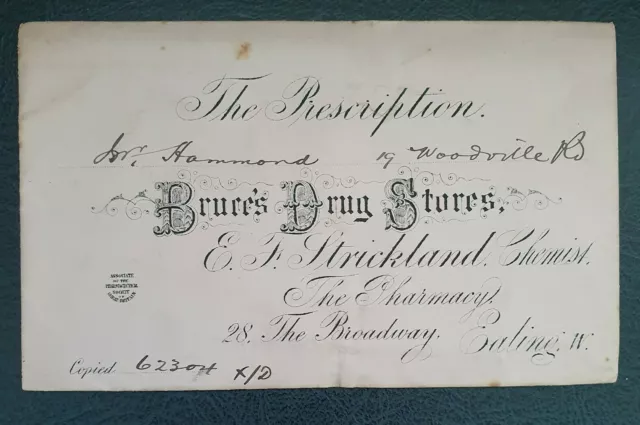 The Prescription.
Mr. Hammond 19 Woodville Rd
Bruce's Drug Stores,
E. F. Strickland, Chemist.
The Pharmacy,
28. The Broadway. Ealing, W.
ASSOCIATE
OF THE
PHARMACEUTICAL
SOCIETY
OF
GREAT BRITAIN
Copied 62304 X/D